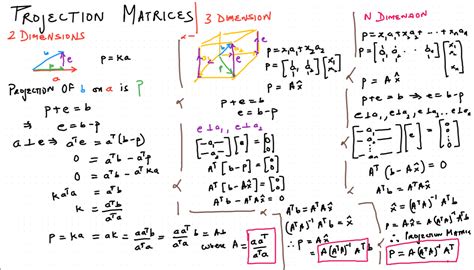 PROJECTION MATRICES
2 DIMENSIONS
b
e
p
a
p = ka
PROJECTION OF b on a is p
p + e = b
⇒ e = b - p
a ⊥ e ⇒ aᵀe = aᵀ(b - p)
0 = aᵀb - aᵀp
0 = aᵀb - aᵀka
kaᵀa = aᵀb
k = aᵀb / aᵀa
p = ka = ak = aaᵀb / aᵀa = aaᵀ / aᵀa b = Ab
where A = aaᵀ / aᵀa
3 DIMENSION
b
e
p
p = x₁a₁ + x₂a₂
p = [a₁ a₂] [x₁ x₂]
p = A x̂
p + e = b
e = b - p
e ⊥ a₁, e ⊥ a₂
[-a₁- -a₂-] [e] = [0 0]
Aᵀ [b - p] = [0 0]
Aᵀ [b - Ax̂] = [0 0]
Aᵀb - AᵀAx̂ = 0
Aᵀb = AᵀAx̂
(AᵀA)⁻¹ Aᵀb = x̂
∴ p = Ax̂
p = A(AᵀA)⁻¹Aᵀb
N DIMENSION
p = x₁a₁ + x₂a₂ + ... + xₙaₙ
p = A x̂
p + e = b ⇒ e = b - p
Aᵀ(b - Ax̂) = 0
Aᵀb - AᵀAx̂ = 0
x̂ = (AᵀA)⁻¹ Aᵀb
p = Ax̂ = A(AᵀA)⁻¹Aᵀb
∴ Projection Matrix
P = A(AᵀA)⁻¹Aᵀ